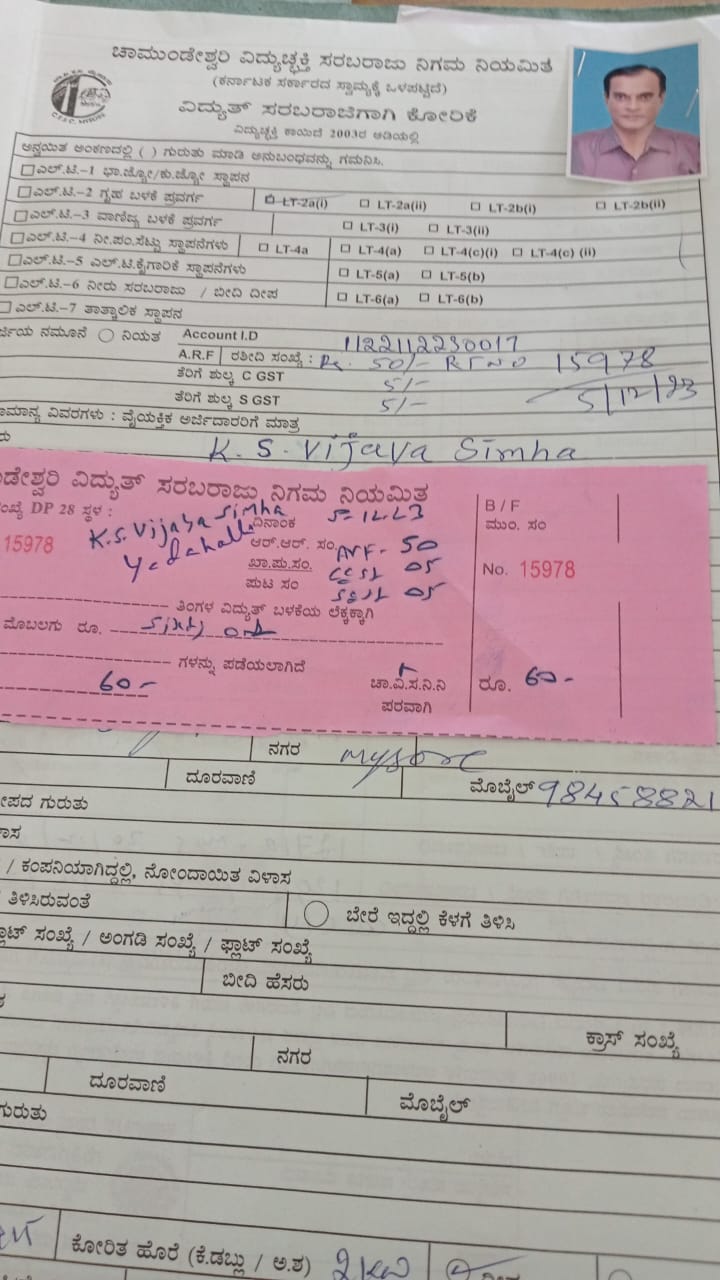 ಚಾಮುಂಡೇಶ್ವರಿ ವಿದ್ಯುಚ್ಛಕ್ತಿ ಸರಬರಾಜು ನಿಗಮ ನಿಯಮಿತ
(ಕರ್ನಾಟಕ ಸರ್ಕಾರದ ಸ್ವಾಮ್ಯಕ್ಕೆ ಒಳಪಟ್ಟಿದೆ)
ವಿದ್ಯುತ್ ಸರಬರಾಜಿಗಾಗಿ ಕೋರಿಕೆ
ವಿದ್ಯುಚ್ಛಕ್ತಿ ಕಾಯಿದೆ 2003ರ ಅಡಿಯಲ್ಲಿ
ಅನ್ವಯಿತ ಅಂಕಣದಲ್ಲಿ ( ) ಗುರುತು ಮಾಡಿ ಅನುಬಂಧವನ್ನು ಗಮನಿಸಿ.
ಎಲ್.ಟಿ.-1 ಭಾ.ಜ್ಯೋ/ಕು.ಜ್ಯೋ ಸ್ಥಾಪನ
ಎಲ್.ಟಿ.-2 ಗೃಹ ಬಳಕೆ ಪ್ರವರ್ಗ LT-2a(i) LT-2a(ii) LT-2b(i) LT-2b(ii)
ಎಲ್.ಟಿ.-3 ವಾಣಿಜ್ಯ ಬಳಕೆ ಪ್ರವರ್ಗ LT-3(i) LT-3(ii)
ಎಲ್.ಟಿ.-4 ನೀ.ಪಂ.ಸೆಟ್ಟು ಸ್ಥಾಪನೆಗಳು LT-4a LT-4(a) LT-4(c)(i) LT-4(c) (ii)
ಎಲ್.ಟಿ.-5 ಎಲ್.ಟಿ.ಕೈಗಾರಿಕೆ ಸ್ಥಾಪನೆಗಳು LT-5(a) LT-5(b)
ಎಲ್.ಟಿ.-6 ನೀರು ಸರಬರಾಜು / ಬೀದಿ ದೀಪ LT-6(a) LT-6(b)
ಎಲ್.ಟಿ.-7 ತಾತ್ಕಾಲಿಕ ಸ್ಥಾಪನ
ರ್ಜಿಯ ನಮೂನೆ ನಿಯತ Account I.D 1122112230017
A.R.F ರಶೀದಿ ಸಂಖ್ಯೆ : Rs. 50/- RT NO 15978
ತೆರಿಗೆ ಶುಲ್ಕ C GST 5/- 5/12/23
ತೆರಿಗೆ ಶುಲ್ಕ S GST 5/-
ಾಮಾನ್ಯ ವಿವರಗಳು : ವೈಯಕ್ತಿಕ ಅರ್ಜಿದಾರರಿಗೆ ಮಾತ್ರ
ರು K. S. Vijaya Simha
ಂಡೇಶ್ವರಿ ವಿದ್ಯುತ್ ಸರಬರಾಜು ನಿಗಮ ನಿಯಮಿತ B / F
ಂಖ್ಯೆ DP 28 ಸ್ಥಳ : K.S. Vijaya Simha ದಿನಾಂಕ 5-12-23 ಮುಂ. ಸಂ
15978 Yedahalli ಆರ್.ಆರ್. ಸಂ. ARF - 50 No. 15978
ಖಾ.ಪು.ಸಂ. CGST 05
ಪುಟ ಸಂ SGST 05
ತಿಂಗಳ ವಿದ್ಯುತ್ ಬಳಕೆಯ ಲೆಕ್ಕಕ್ಕಾಗಿ
ಮೊಬಲಗು ರೂ. Sixty
ಗಳನ್ನು ಪಡೆಯಲಾಗಿದೆ
60- ಚಾ.ವಿ.ಸ.ನಿ.ನಿ ರೂ. 60-
ಪರವಾಗಿ
ನಗರ mysore
ದೂರವಾಣಿ ಮೊಬೈಲ್ 98458821
ೀಪದ ಗುರುತು
ಾಸ
/ ಕಂಪನಿಯಾಗಿದ್ದಲ್ಲಿ, ನೋಂದಾಯಿತ ವಿಳಾಸ
ತಿಳಿಸಿರುವಂತೆ ಬೇರೆ ಇದ್ದಲ್ಲಿ ಕೆಳಗೆ ತಿಳಿಸಿ
್ಲಾಟ್ ಸಂಖ್ಯೆ / ಅಂಗಡಿ ಸಂಖ್ಯೆ / ಫ್ಲಾಟ್ ಸಂಖ್ಯೆ
ಬೀದಿ ಹೆಸರು
ಕ್ರಾಸ್ ಸಂಖ್ಯೆ
ನಗರ
ದೂರವಾಣಿ ಮೊಬೈಲ್
ಗುರುತು
ಕೋರಿತ ಹೊರೆ (ಕೆ.ಡಬ್ಲು / ಅ.ಶ) 2 KW